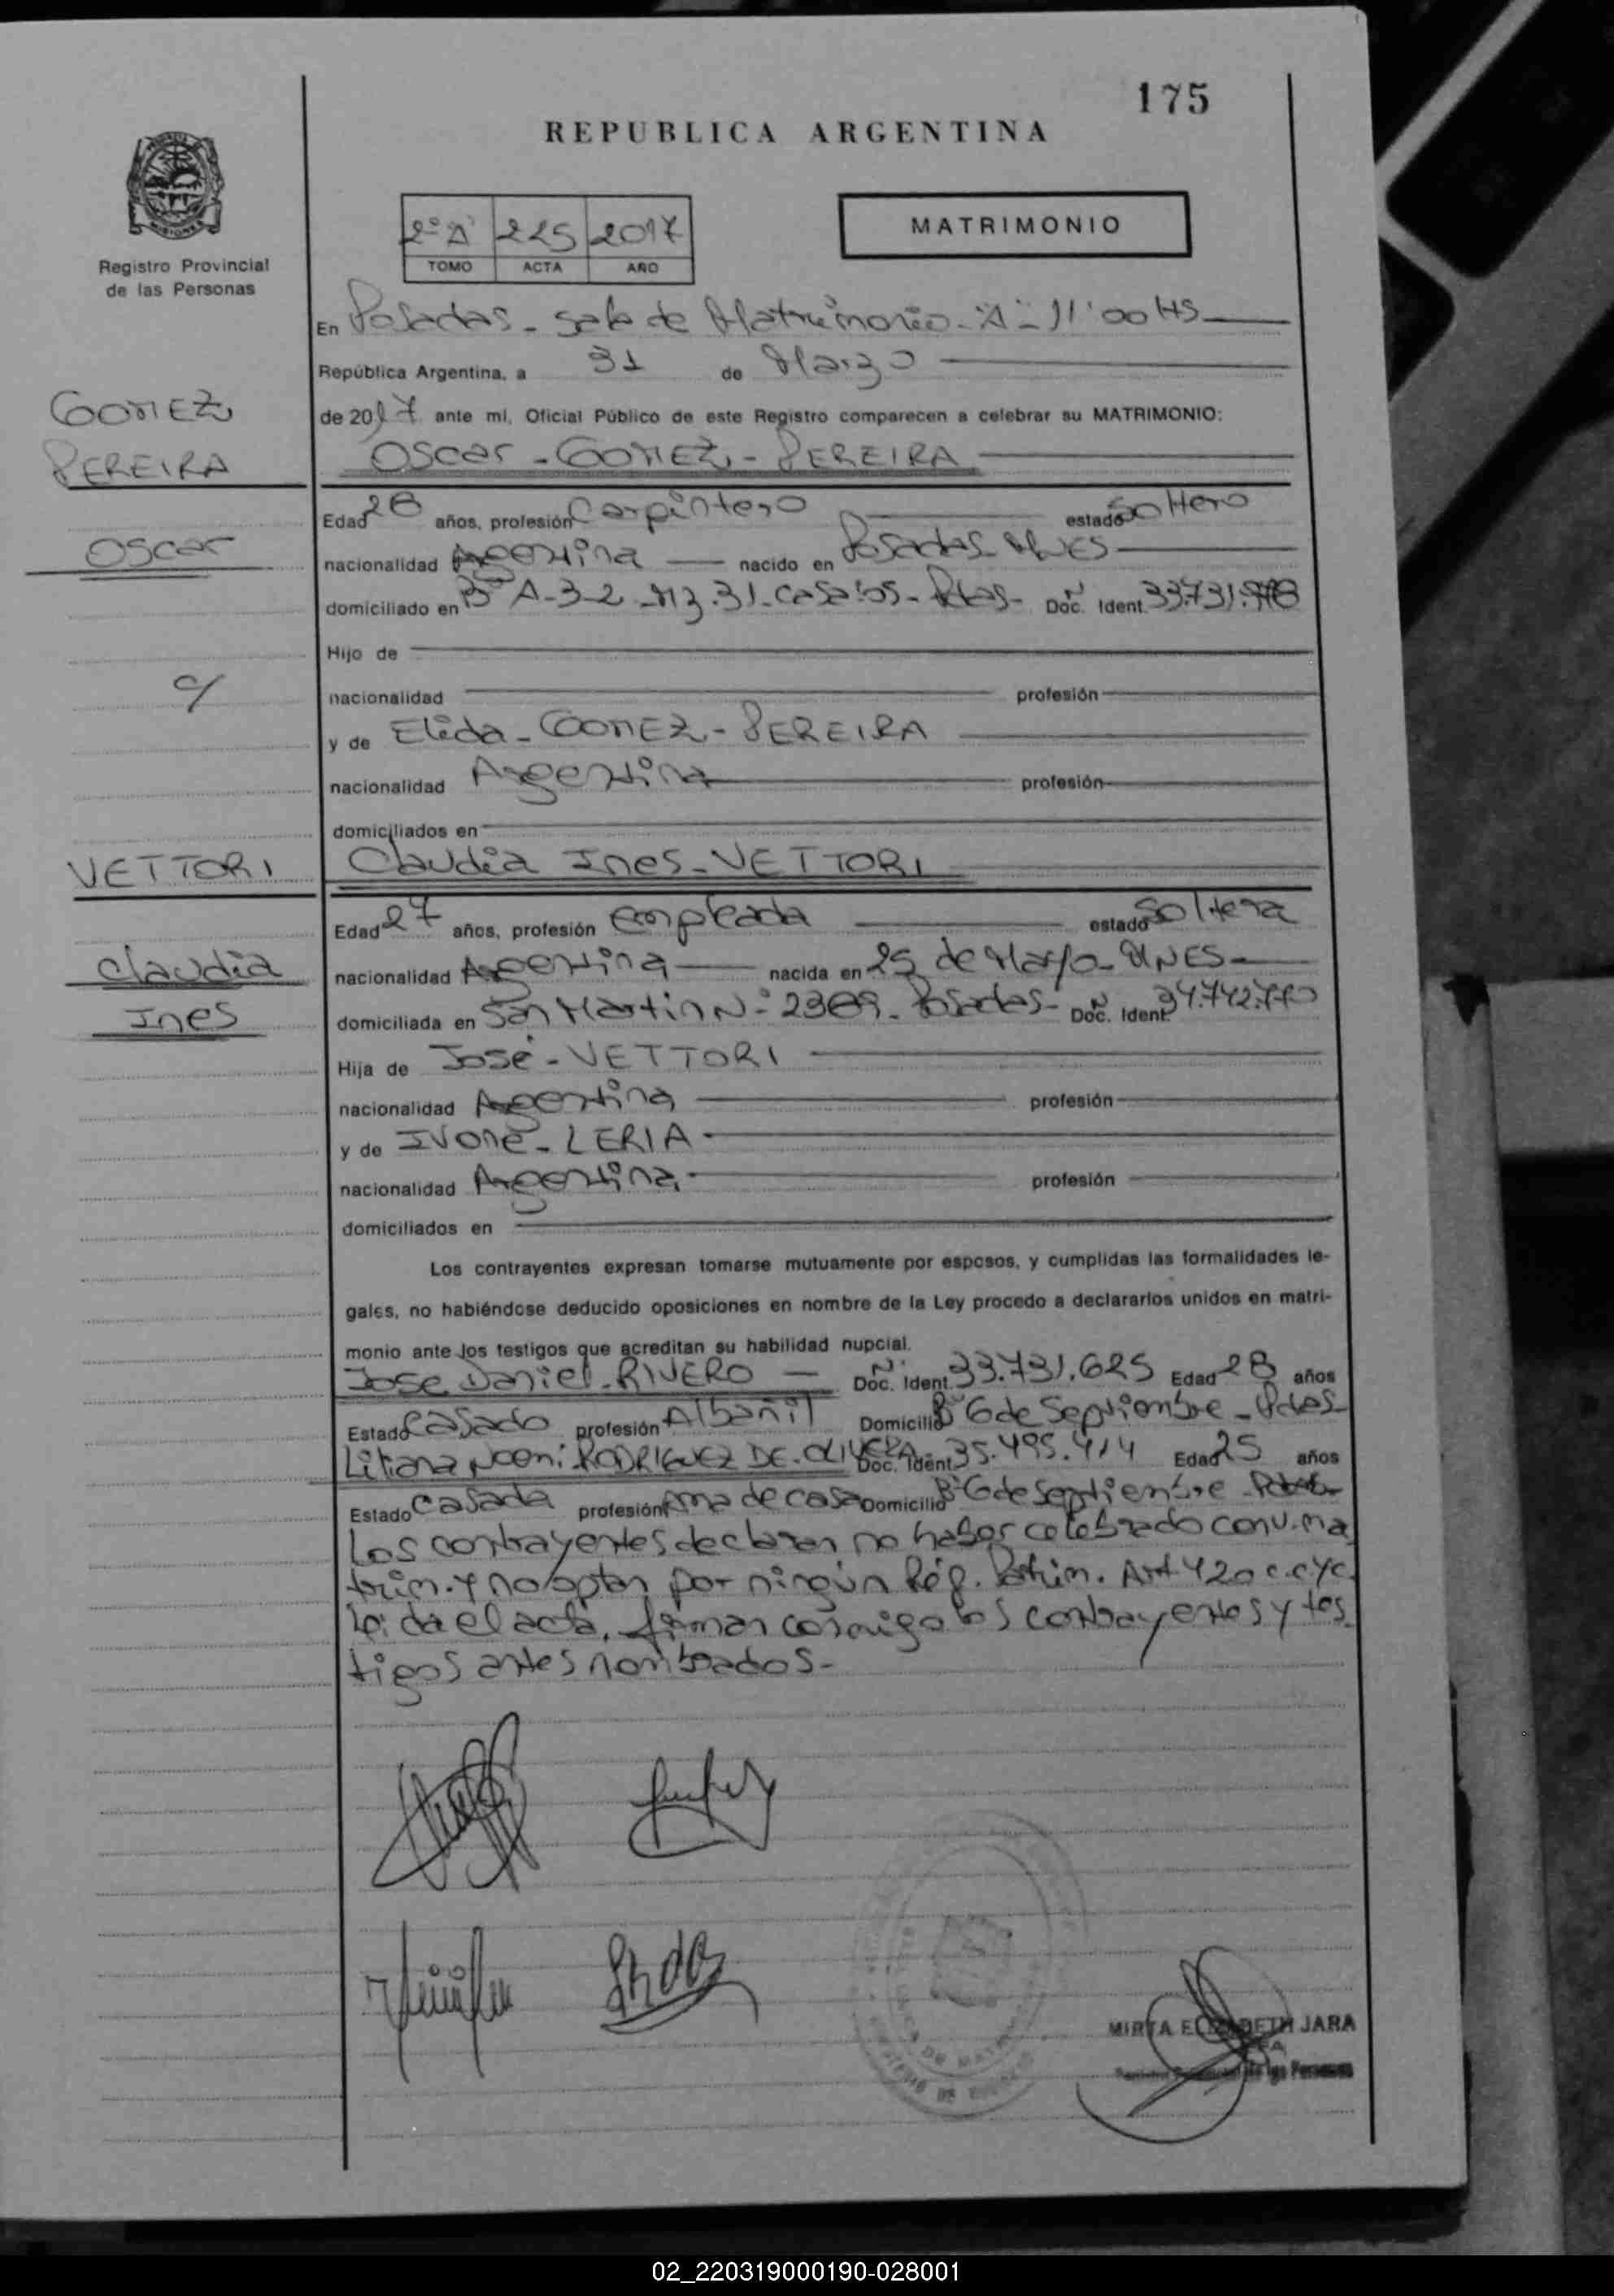 175
REPUBLICA ARGENTINA
2º "A" 225 2017
TOMO ACTA AÑO
MATRIMONIO
Registro Provincial
de las Personas
En Posadas - Sala de Matrimonio - "A" - 11:00 HS
República Argentina, a 31 de Marzo
de 2017 ante mí, Oficial Público de este Registro comparecen a celebrar su MATRIMONIO:
GOMEZ
PEREIRA
Oscar - GOMEZ - PEREIRA
Edad 28 años, profesión Carpintero estado Soltero
Oscar
nacionalidad Argentina nacido en Posadas - MNES
domiciliado en Bº A-3-2 - Mz. 31 - Casa: 05 - Pdas - Doc. Nº Ident. 33.731.
Hijo de
c/
nacionalidad profesión
y de Elida - GOMEZ - PEREIRA
nacionalidad Argentina profesión
domiciliados en
VETTORI
Claudia Ines - VETTORI
Edad 27 años, profesión empleada estado Soltera
Claudia
Ines
nacionalidad Argentina nacida en 25 de Mayo - MNES -
domiciliada en San Martin Nº 2369 - Posadas - Doc. Nº Ident. 34.742.770
Hija de José - VETTORI
nacionalidad Argentina profesión
y de Ivone - LERIA -
nacionalidad Argentina profesión
domiciliados en
Los contrayentes expresan tomarse mutuamente por esposos, y cumplidas las formalidades le-
gales, no habiéndose deducido oposiciones en nombre de la Ley procedo a declararlos unidos en matri-
monio ante los testigos que acreditan su habilidad nupcial.
Jose Daniel - RIVERO - Doc. Nº Ident. 33.731.625 Edad 28 años
Estado Casado profesión Albañil Domicilio Bº 6 de Septiembre - Pdas -
Liliana Noemi RODRIGUEZ DE OLIVERA - Doc. Nº Ident. 35.495.414 Edad 25 años
Estado Casada profesión Ama de casa Domicilio Bº 6 de Septiembre
Los contrayentes declaran no haber celebrado conv. ma
trim. y no optan por ningún Rég. Patrim. Art 420 c.c y c.
leida el acta, firman conmigo los contrayentes y tes
tigos antes nombrados -
MIRTA ELIZABETH JARA
02_220319000190-028001